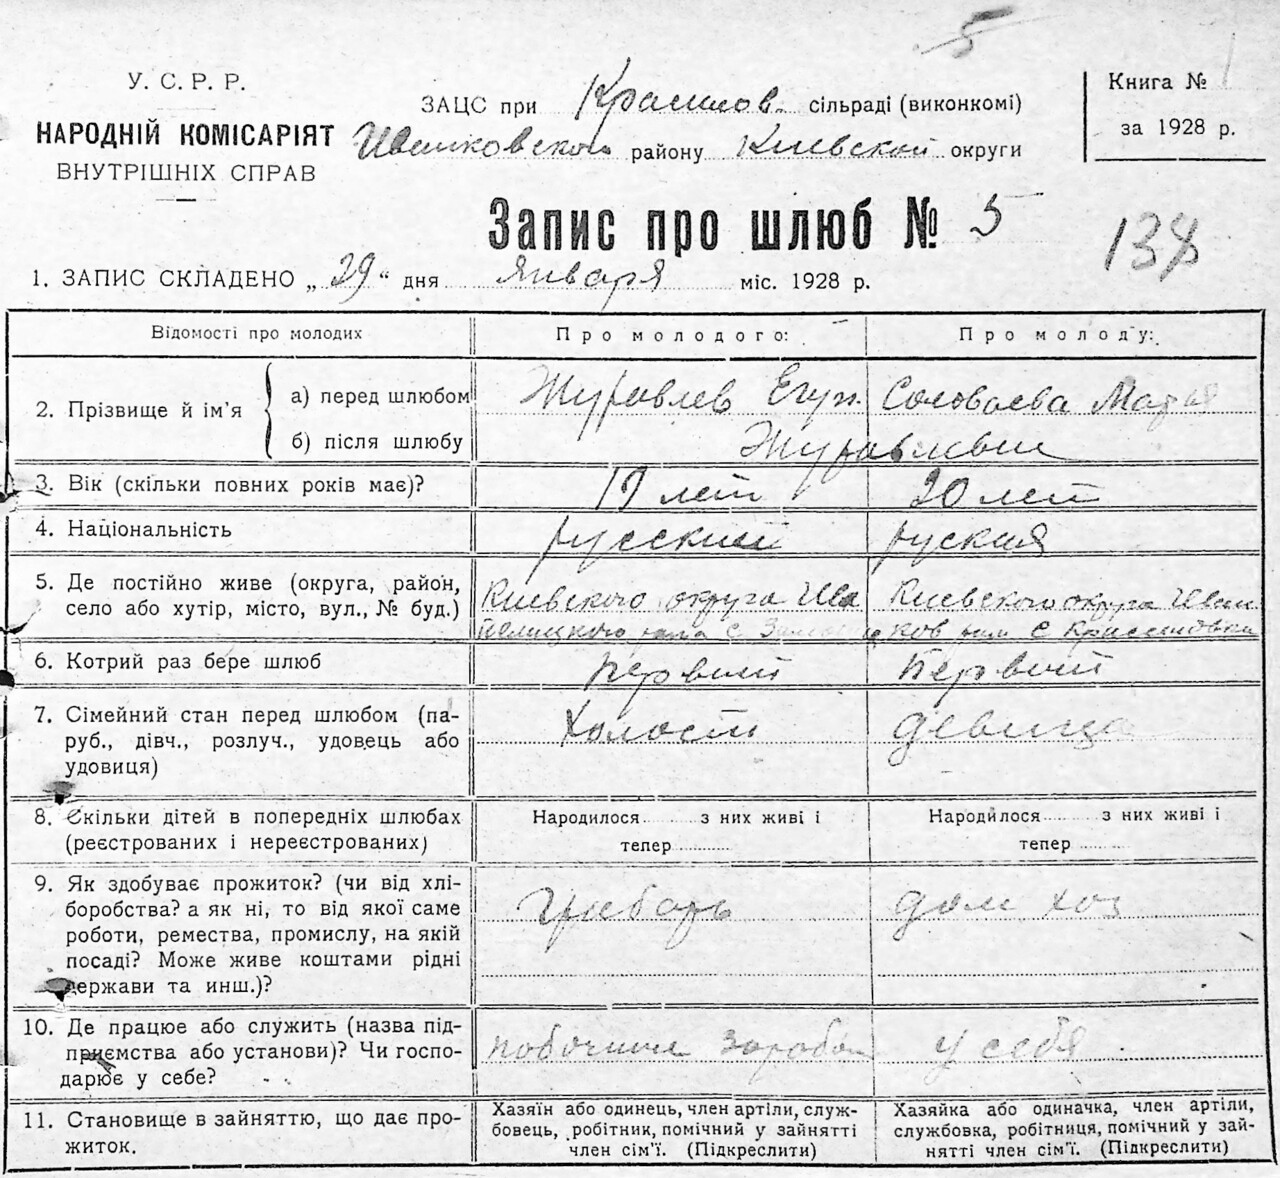 5
У. С. Р. Р.
НАРОДНІЙ КОМІСАРІЯТ
ВНУТРІШНІХ СПРАВ
ЗАЦС при Красилов. сільраді (виконкомі)
району Киевской округи
Книга № 1
за 1928 р.
Запис про шлюб № 5
138
1. ЗАПИС СКЛАДЕНО „29“ дня января міс. 1928 р.
Відомості про молодих
Про молодого:
Про молоду:
2. Прізвище й ім'я
а) перед шлюбом
Журавлев
Соловаева
б) після шлюбу
Журавлевы
3. Вік (скільки повних років має)?
19 лет
20 лет
4. Національність
русский
руская
5. Де постійно живе (округа, район,
село або хутір, місто, вул., № буд.)
Киевского округа Ива
с
Киевского округа Иван
ков с
6. Котрий раз бере шлюб
первый
первый
7. Сімейний стан перед шлюбом (па-
руб., дівч., розлуч., удовець або
удовиця)
холост
девица
8. Скільки дітей в попередніх шлюбах
(реєстрованих і нереєстрованих)
Народилося ........ з них живі і
тепер ..........
Народилося ........ з них живі і
тепер ..........
9. Як здобуває прожиток? (чи від хлі-
боробства? а як ні, то від якої саме
роботи, ремества, промислу, на якій
посаді? Може живе коштами рідні
держави та инш.)?
грабарь
дом хоз
10. Де працює або служить (назва під-
приємства або установи)? Чи госпо-
дарює у себе?
у себя
11. Становище в зайняттю, що дає про-
житок.
Хазяїн або одинець, член артіли, служ-
бовець, робітник, помічний у зайнятті
член сім'ї. (Підкреслити)
Хазяйка або одиначка, член артіли,
службовка, робітниця, помічний у зай-
нятті член сім'ї. (Підкреслити)